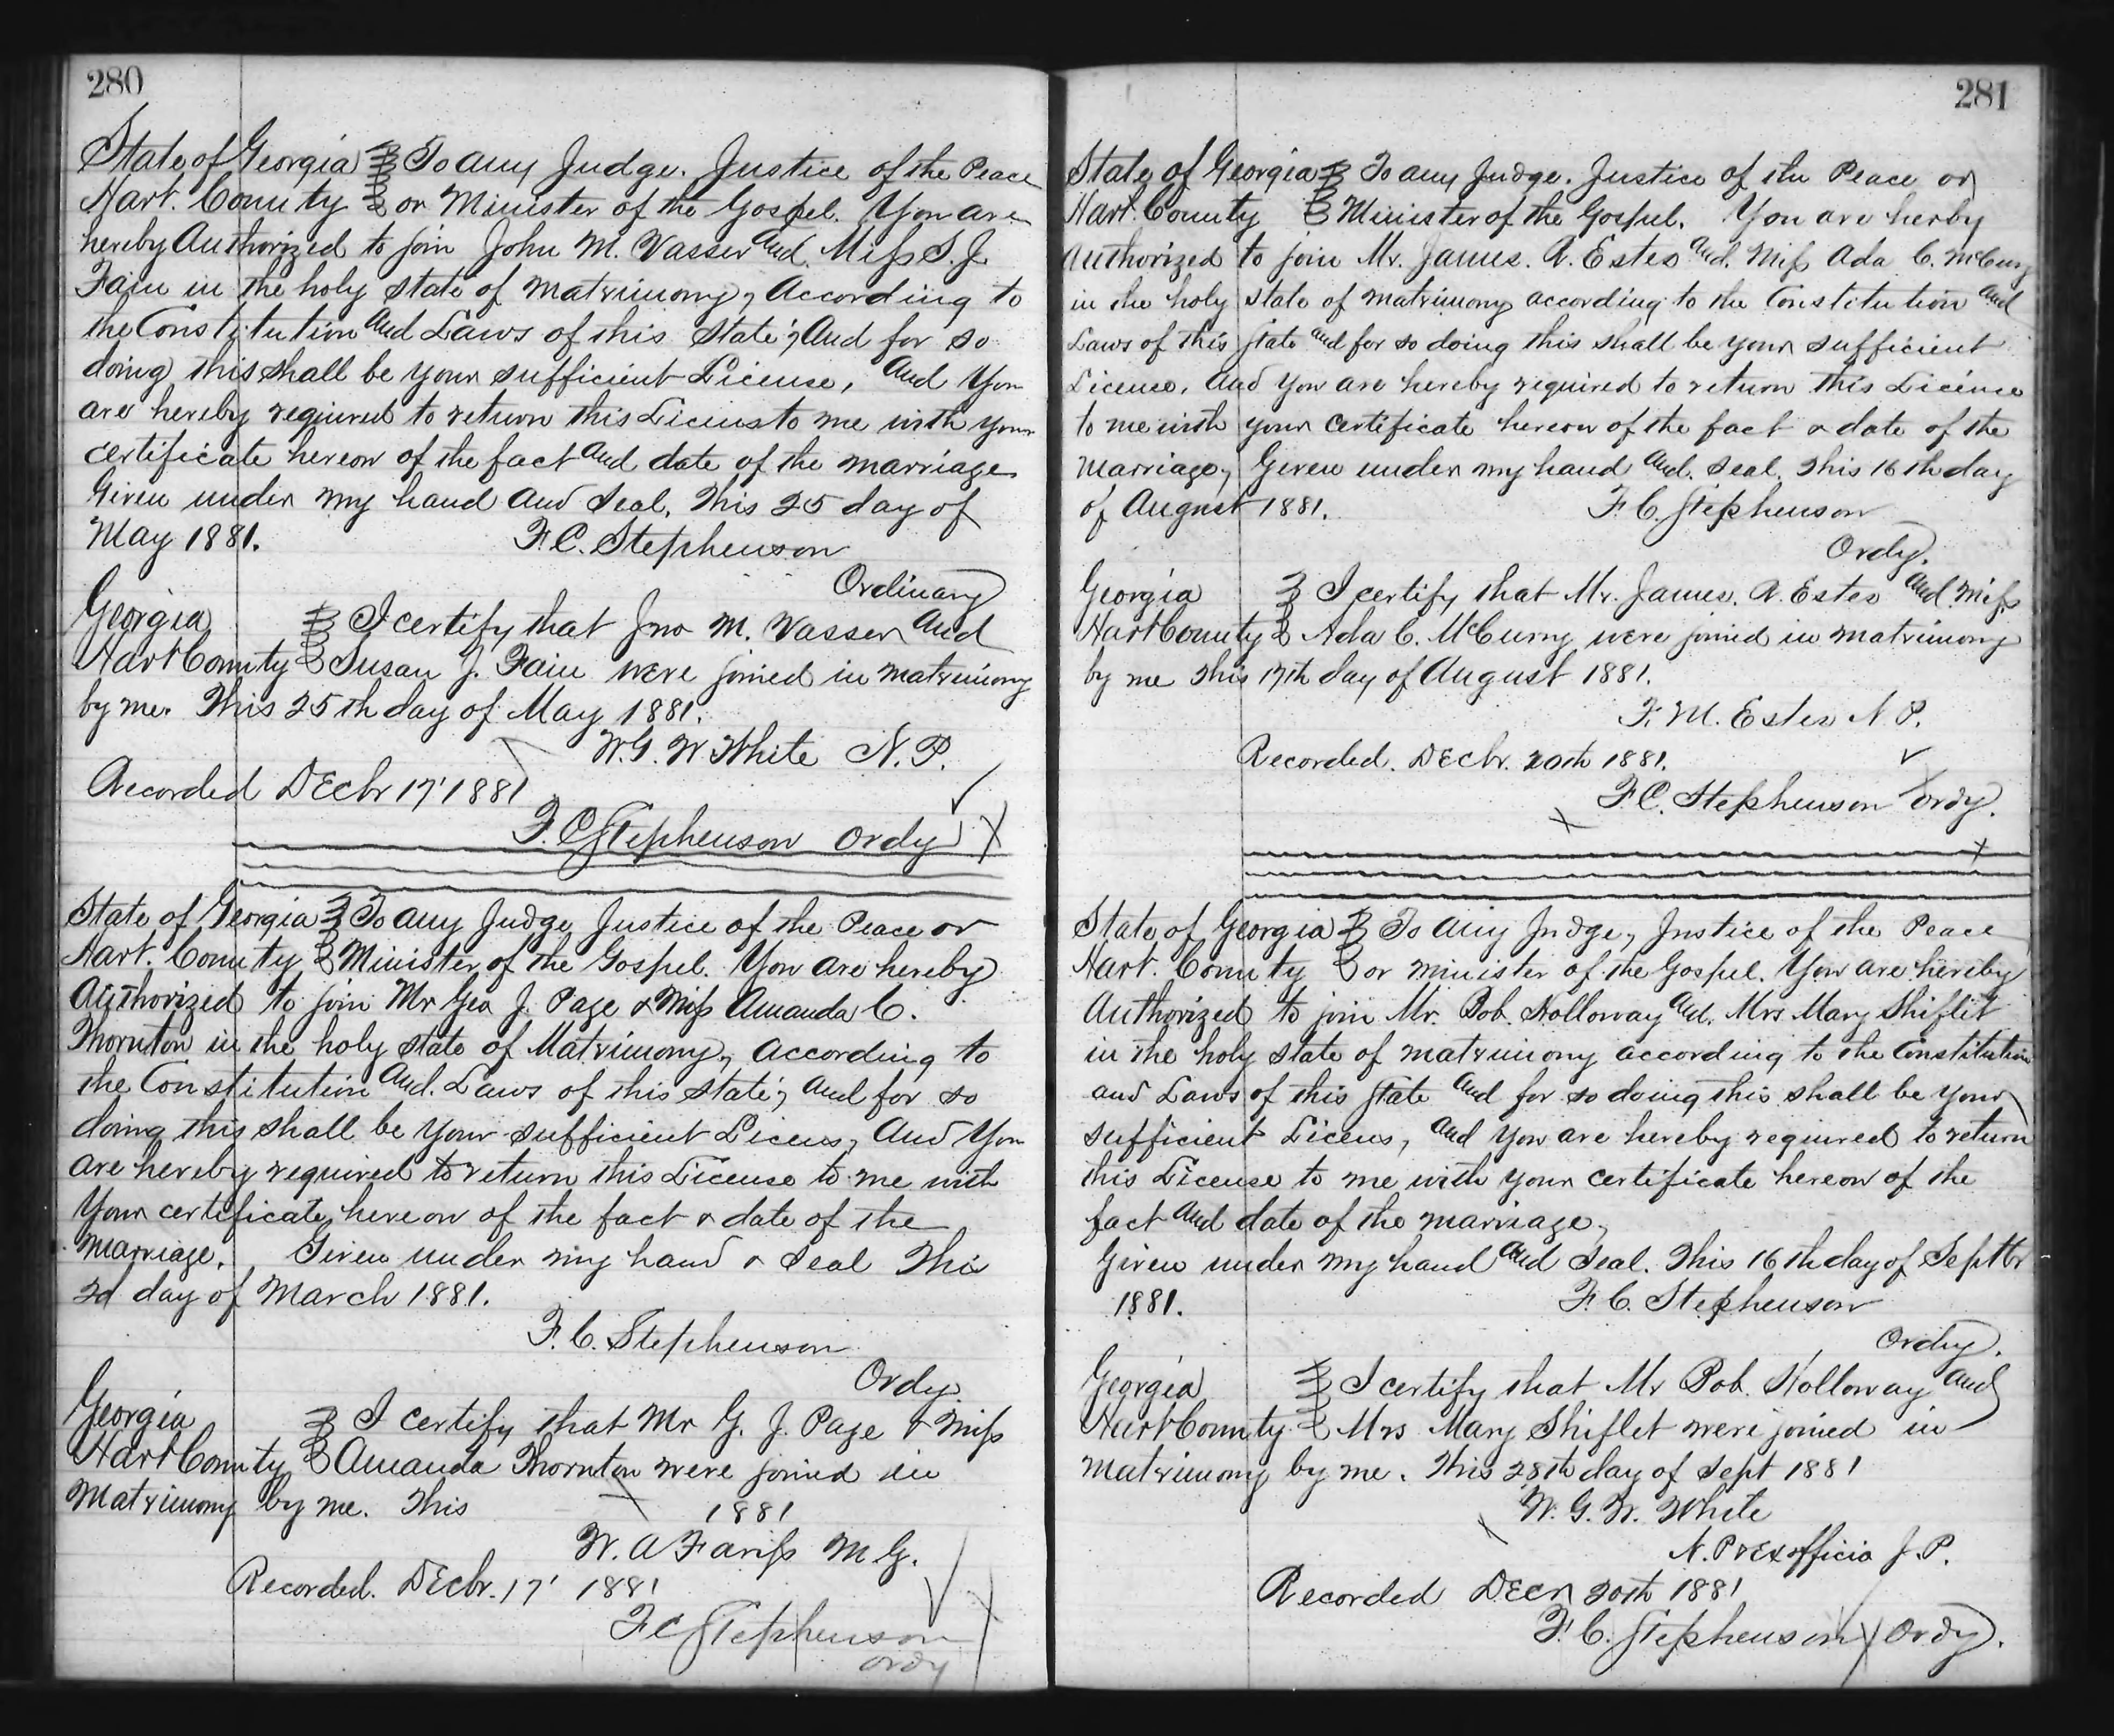 280
State of Georgia } To any Judge. Justice of the Peace
Hart. County } or Minister of the Gospel. You are
hereby Authorized to join John M. Vasser and. Miss S. J.
Fain in the holy state of matrimony, According to
the Constitution and Laws of this State; And for so
doing this shall be your sufficient License, and You
are hereby required to return this Licens to me with your
certificate hereon of the fact and date of the marriage
Given under my hand and Seal, This 25 day of
May 1881. F. C. Stephenson
Ordinary
Georgia } I certify that Jno M. Vasser and
Hart County } Susan J. Fain were joined in matrimony
by me. This 25th day of May 1881.
W. G. W. White N. P.
Recorded DEcbr 17' 1881
F. C Stephenson Ordy
State of Georgia } To any Judge Justice of the Peace or
Hart. County } Minister of the Gospel. You are hereby
Authorized to join Mr Geo J. Page & Miss Amanda C.
Thornton in the holy state of Matrimony, according to
the Constitution and. Laws of this State; and for so
doing this shall be your sufficient Licens, And You
are hereby required to return this License to me with
Your certificate hereon of the fact & date of the
marriage. Given under my hand & Seal This
2d day of March 1881.
F. C. Stephenson
Ordy
Georgia } I certify that Mr G. J. Page & Miss
Hart County } Amanda Thornton were joined in
Matrimony by me. This 1881
W. A Fariss M G.
Recorded. DEcbr. 17' 1881
F C Stephenson
Ordy
281
State of Georgia } To any Judge. Justice of the Peace or
Hart. County } Minister of the Gospel. You are herby
Authorized to join Mr. James. R. Estes and. Miss Ada C. McCury
in the holy state of matrimony according to the Constitution and
Laws of this State and for so doing this shall be your sufficient
License, And You are hereby required to return this License
to me with your certificate hereon of the fact & date of the
marriage, Given under my hand and. Seal. This 16th day
of August 1881. F. C. Stephenson
Ordy.
Georgia } I certify that Mr. James. R. Estes and Miss
Hart County } Ada C. McCurry were joined in matrimony
by me This 17th day of August 1881.
F. M. Estes N P.
Recorded. DEcbr. 20th 1881.
F. C. Stephenson Ordy.
State of Georgia } To any Judge, Justice of the Peace
Hart. County } or minister of the Gospel. You are hereby
Authorized to join Mr. Bob. Holloway and. Mrs Mary Shiflit
in the holy state of matrimony according to the Constitution
and Laws of this State and for so doing this shall be your
sufficient Licens, and You are hereby required to return
this License to me with your certificate hereon of the
fact and date of the marriage,
Given under my hand and Seal. This 16th day of Septbr
1881. F. C. Stephenson
Ordy.
Georgia } I certify that Mr Bob. Holloway and
Hart County } Mrs Mary Shiflet were joined in
matrimony by me. This 28th day of Sept 1881
W. G. W. White
N. P & Ex officio J. P.
Recorded DEcr 20th 1881
F. C. Stephenson Ordy.